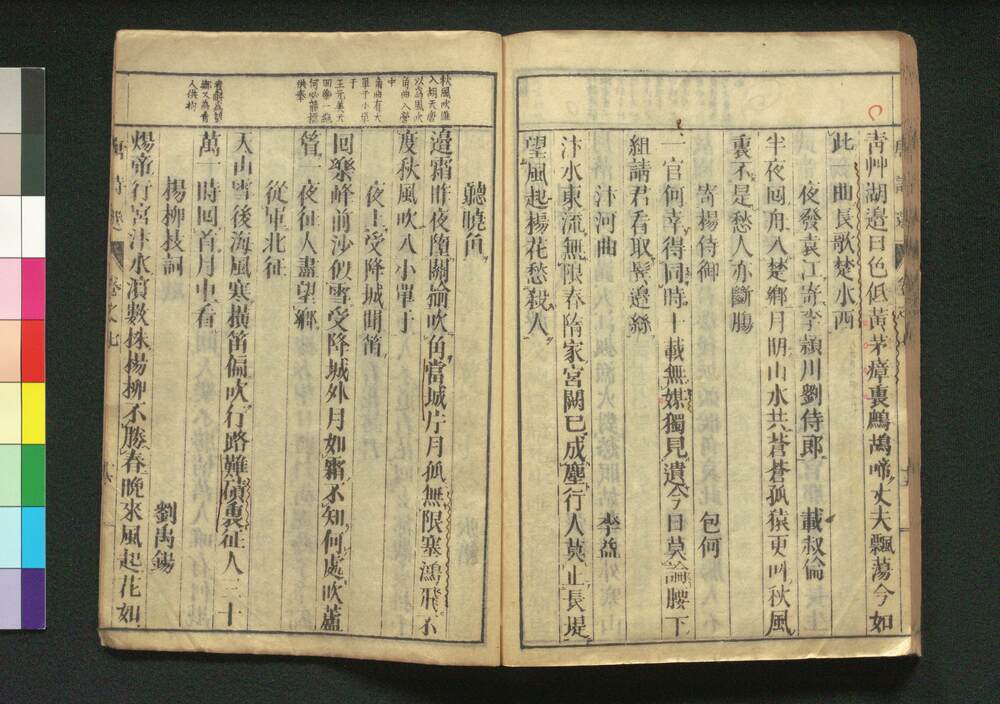 青艸湖邉日色低黃茅瘴裏鷓鴣啼丈夫飄蕩今如
此一曲長歌楚水西
夜發袁江寄李潁川劉侍郎 載叔倫
半夜囘舟入楚鄉月明山水共蒼蒼孤猿更叫秋風
裏不是愁人亦斷腸
寄楊侍御 包何
一官何幸得同時十載無媒獨見遺今日莫論腰下
組請君看取鬂邉絲
汴河曲 李益
汴水東流無限春隋家宮闕已成塵行人莫上長堤
望風起楊花愁殺人
聽曉角
邉霜昨夜墮關榆吹角當城片月孤無限塞鴻飛不
度秋風吹入小單于
夜上受降城聞笛
囘樂峰前沙似雪受降城外月如霜不知何處吹蘆
管一夜征人盡望鄉
從軍北征
天山雪後海風寒橫笛偏吹行路難磧裏征人三十
萬一時囘首月中看
楊柳枝詞
劉禹錫
煬帝行宮汴水濱數株楊柳不勝春晚來風起花如
秋風吹進
入胡天唐
以為風吹
角曲入營
中
角曲有大
單于小單
于
王元美
唐詩選
卷之七